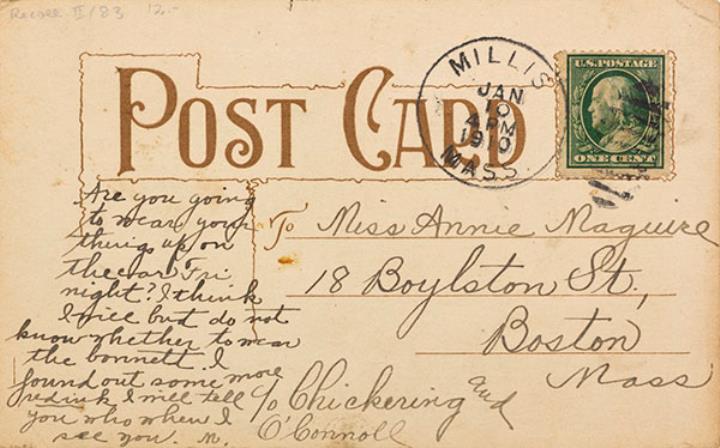 12.-
POST CARD
MILLIS
JAN
10
4 PM
1910
MASS.
U.S. POSTAGE
ONE CENT
Are you going
to wear your
things up on
the car Fri
night? I think
I will but do not
know whether to wear
the bonnett. I
found out some more
I will tell
you who when I
see you. M.
To Miss Annie Maguire
18 Boylston St,
Boston
Mass
c/o Chickering and
O'Connoll